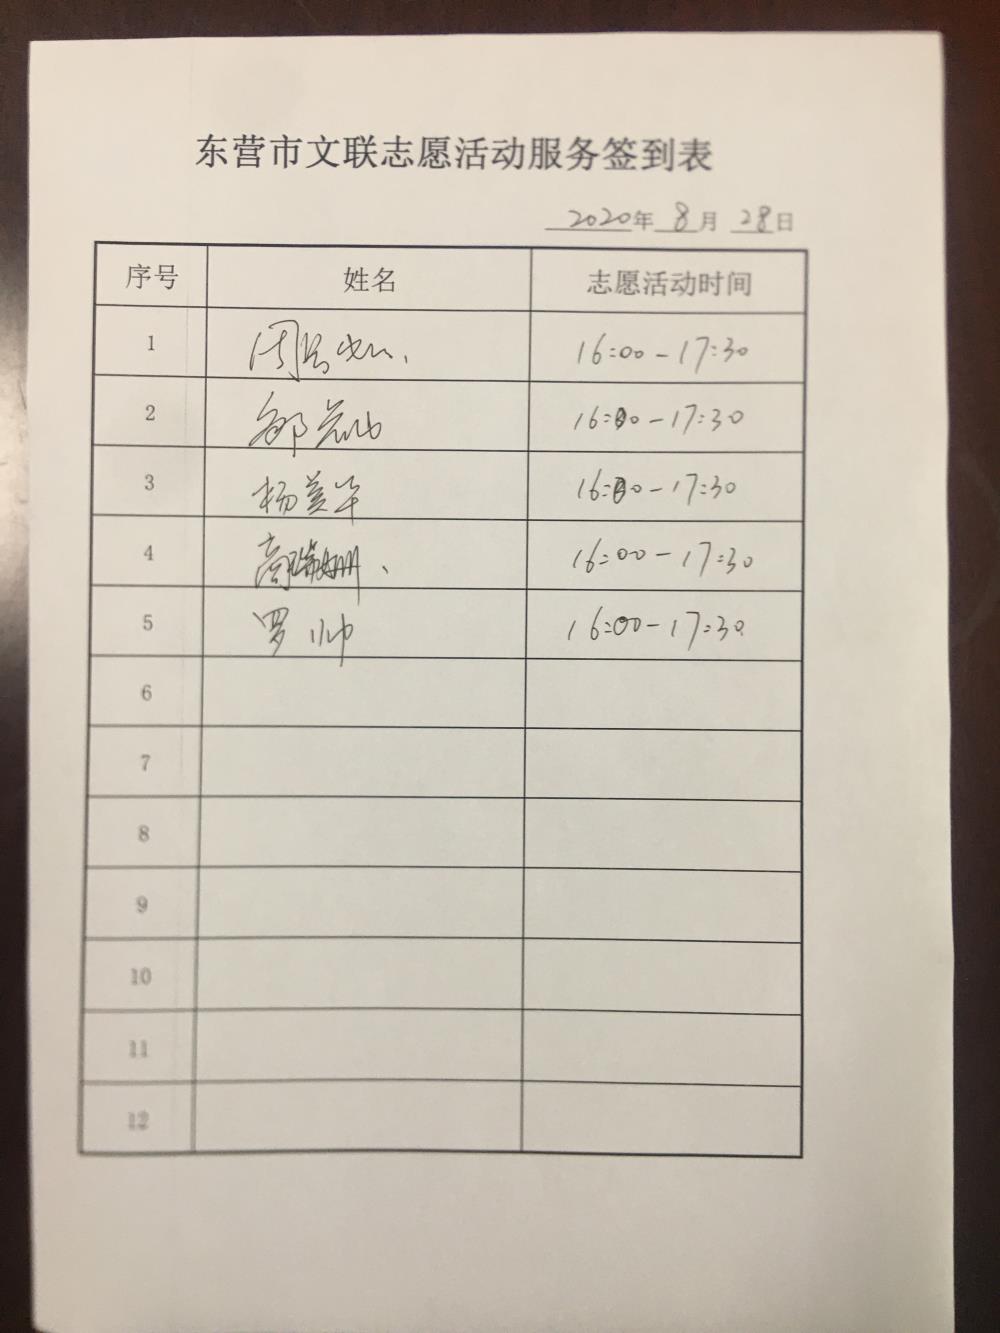 东营市文联志愿活动服务签到表
2020年 8月 28日
序号 姓名 志愿活动时间
1 16:00-17:30
2 16:00-17:30
3 杨美华 16:00-17:30
4 16:00-17:30
5 罗帅 16:00-17:30
6
7
8
9
10
11
12